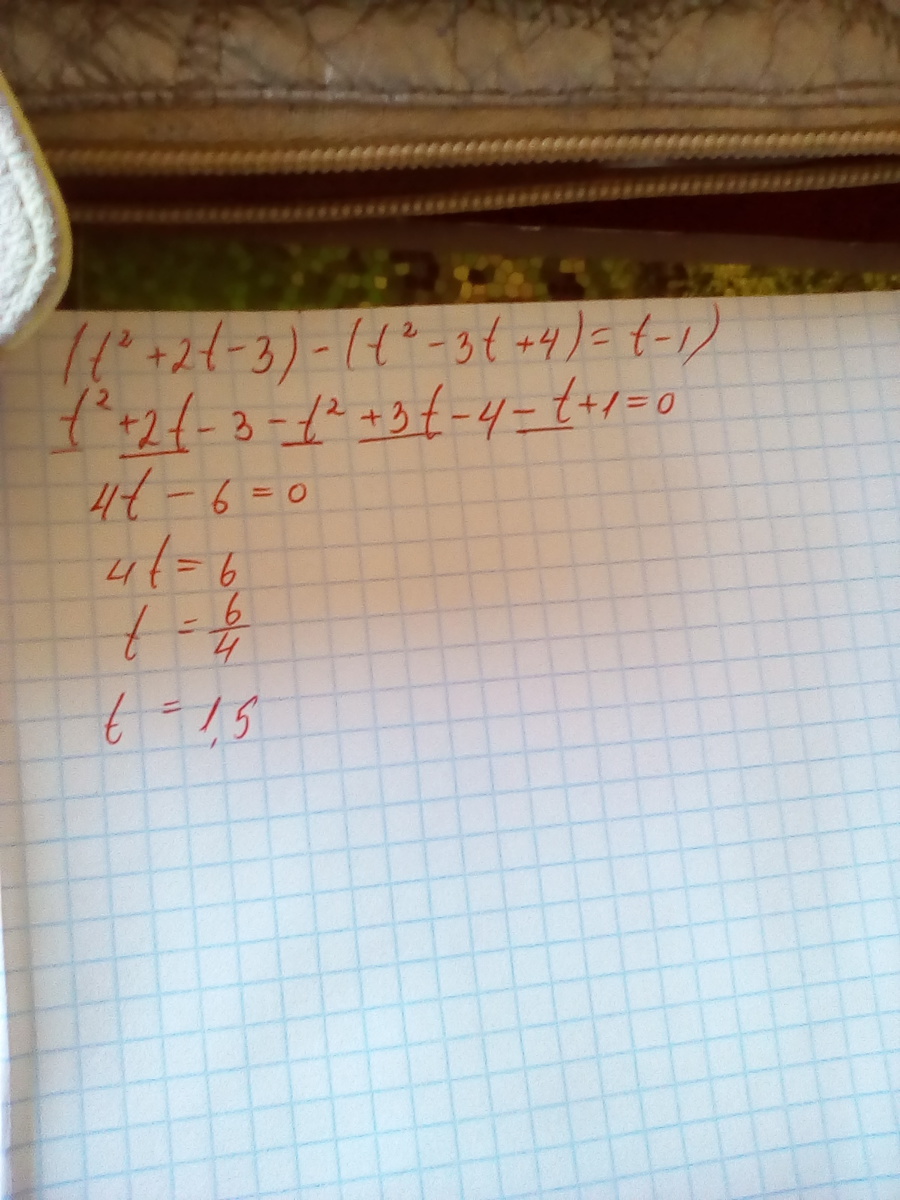 (t² + 2t - 3) - (t² - 3t + 4) = t - 1)
t² + 2t - 3 - t² + 3t - 4 - t + 1 = 0
4t - 6 = 0
4t = 6
t = 6/4
t = 1,5